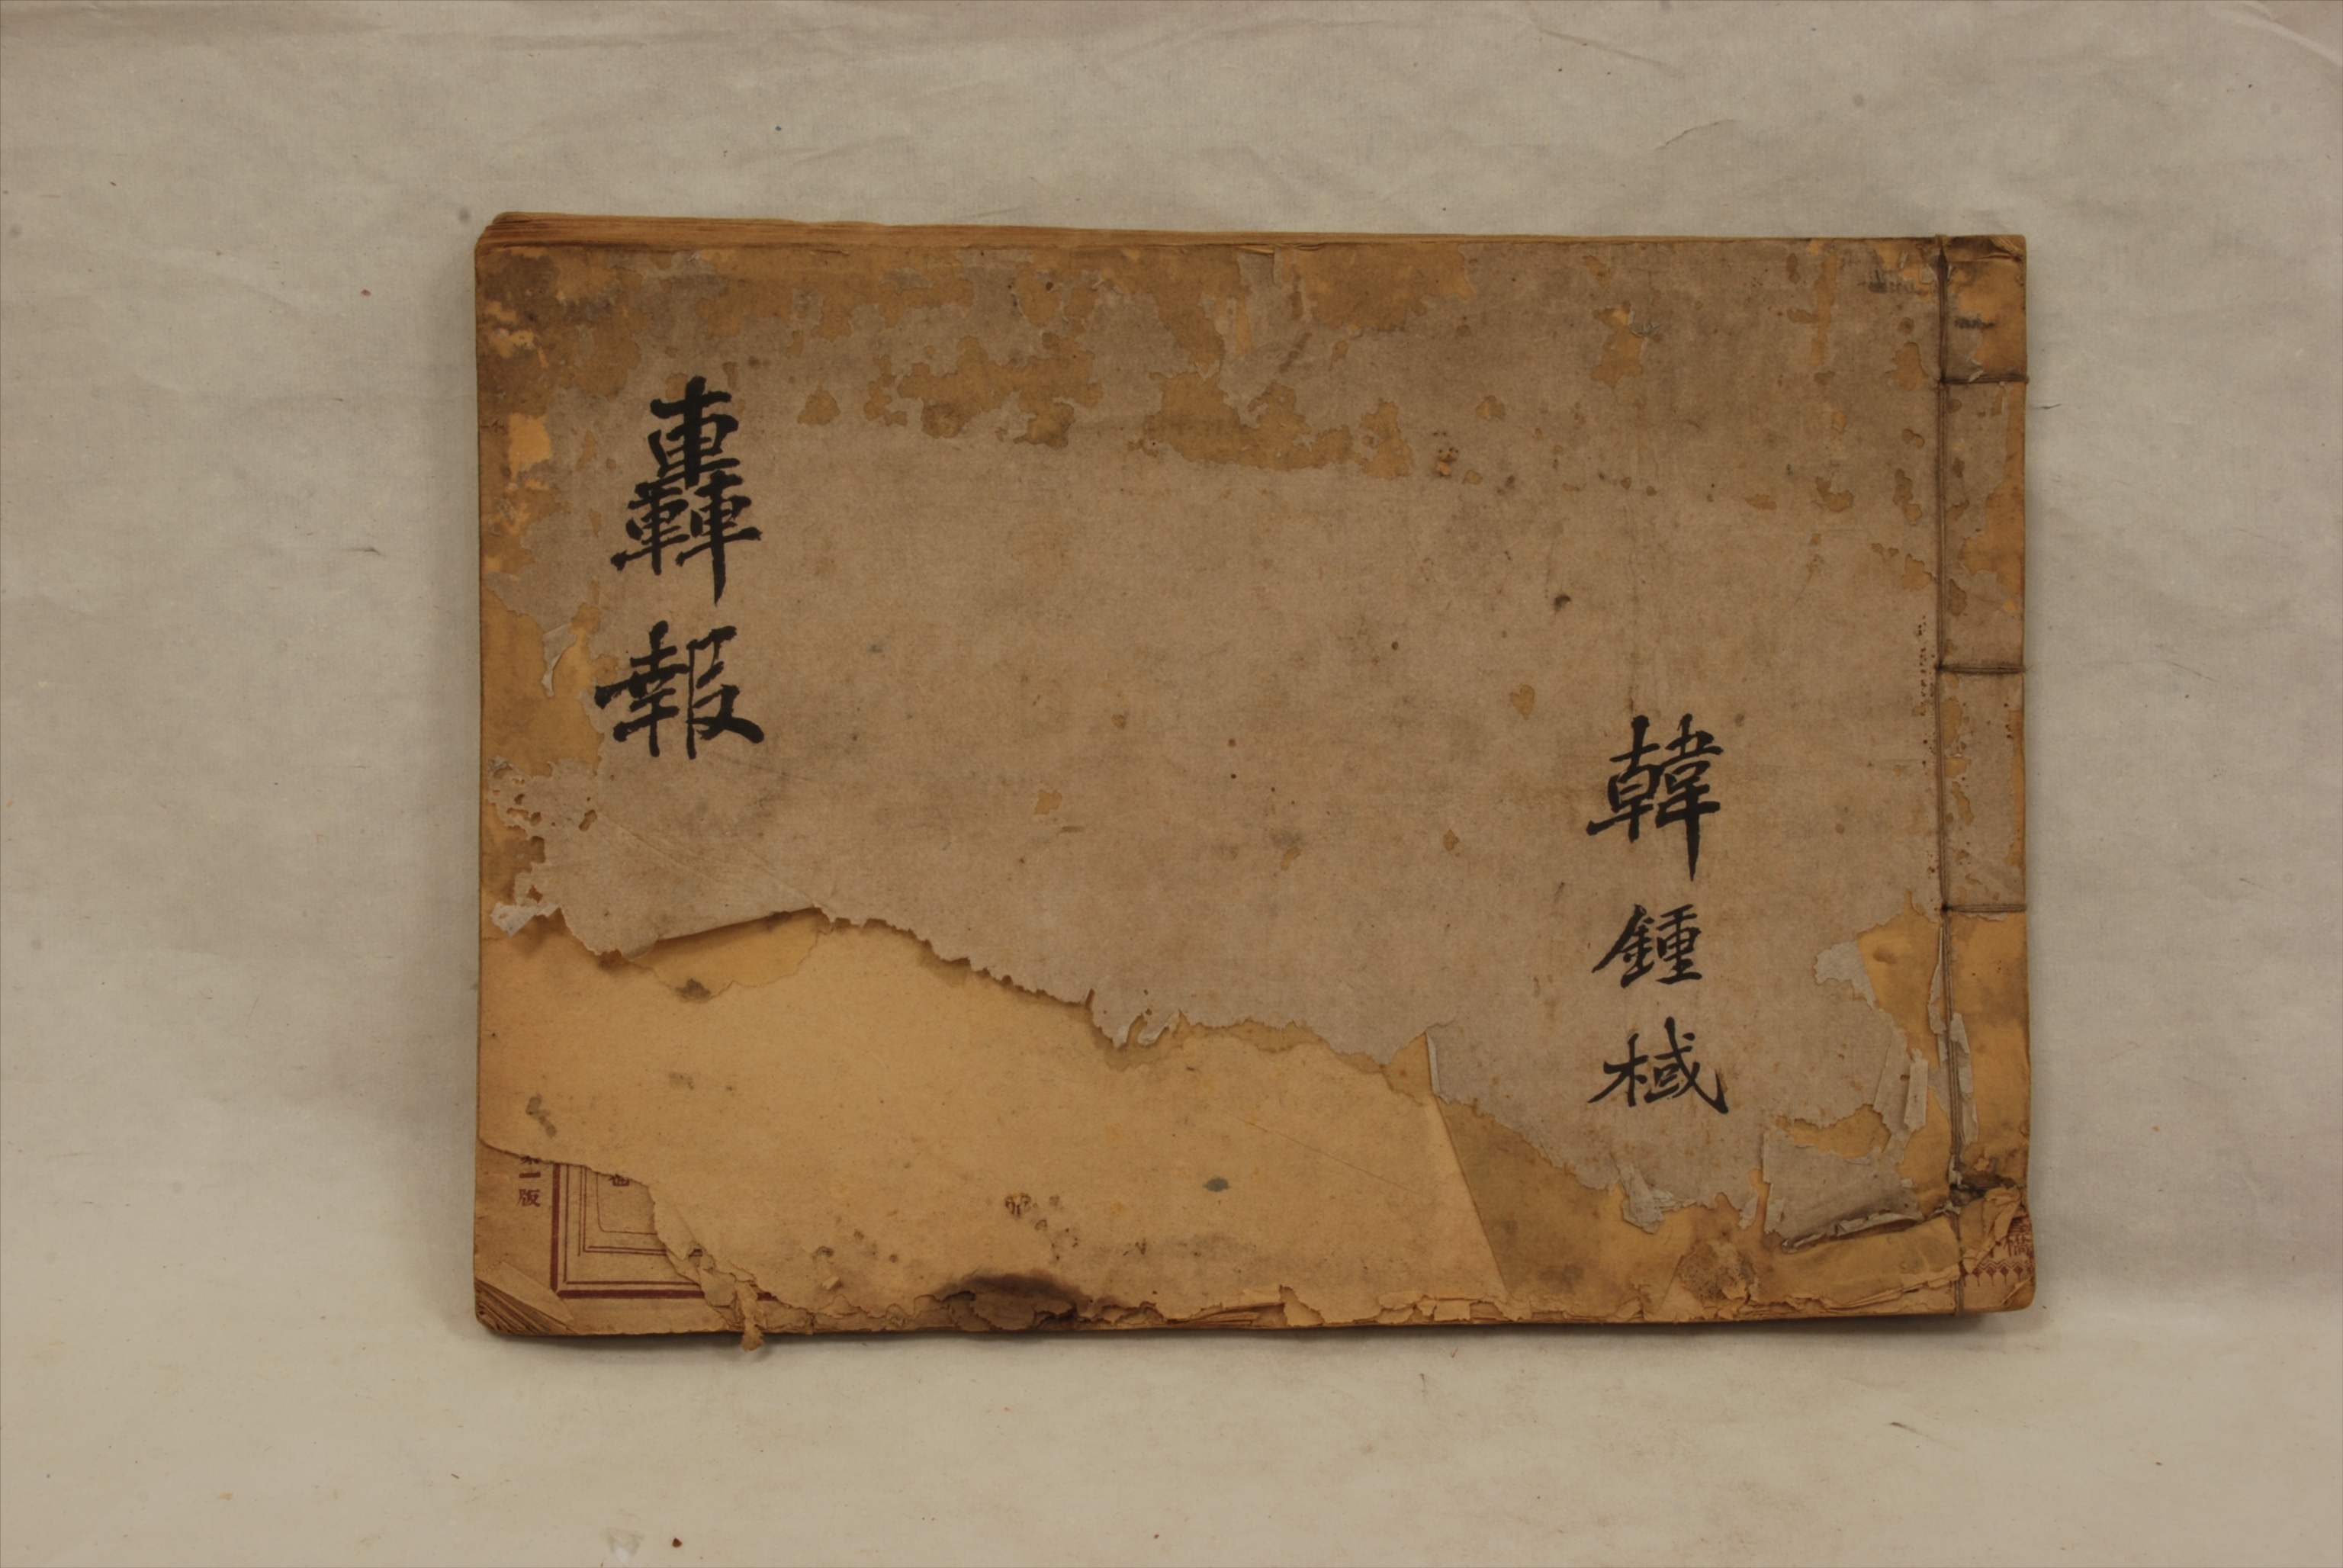 韓鍾棫
轟報
一版